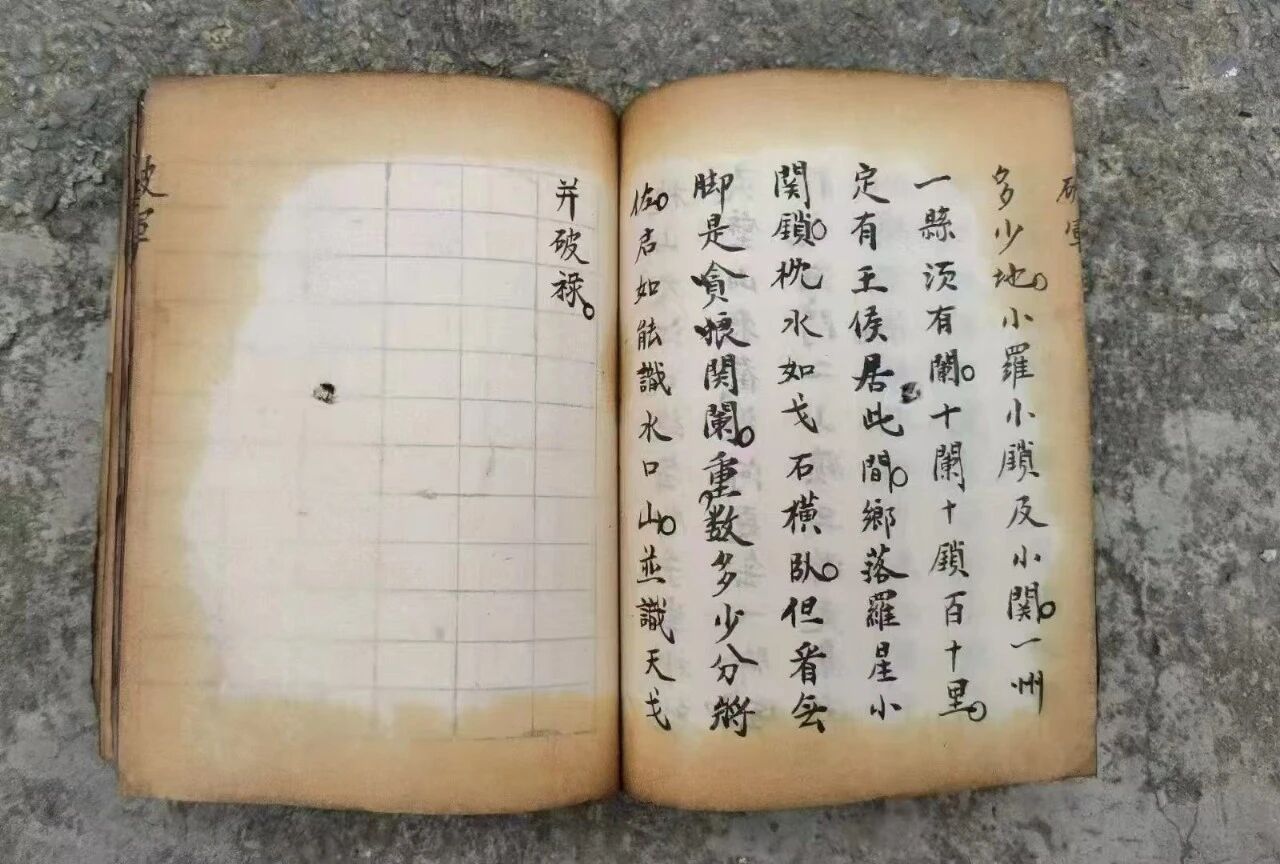 破軍
多少地。小羅小鎖及小関。一州
一縣须有闌。十闌十鎖百十里。
定有王侯居此間。鄉落羅星小
関鎖。枕水如戈石橫臥。但看無
脚是貪狼関闌。重数多少分將
佐。君如能識水口山。並識天戈
并破禄。
破軍